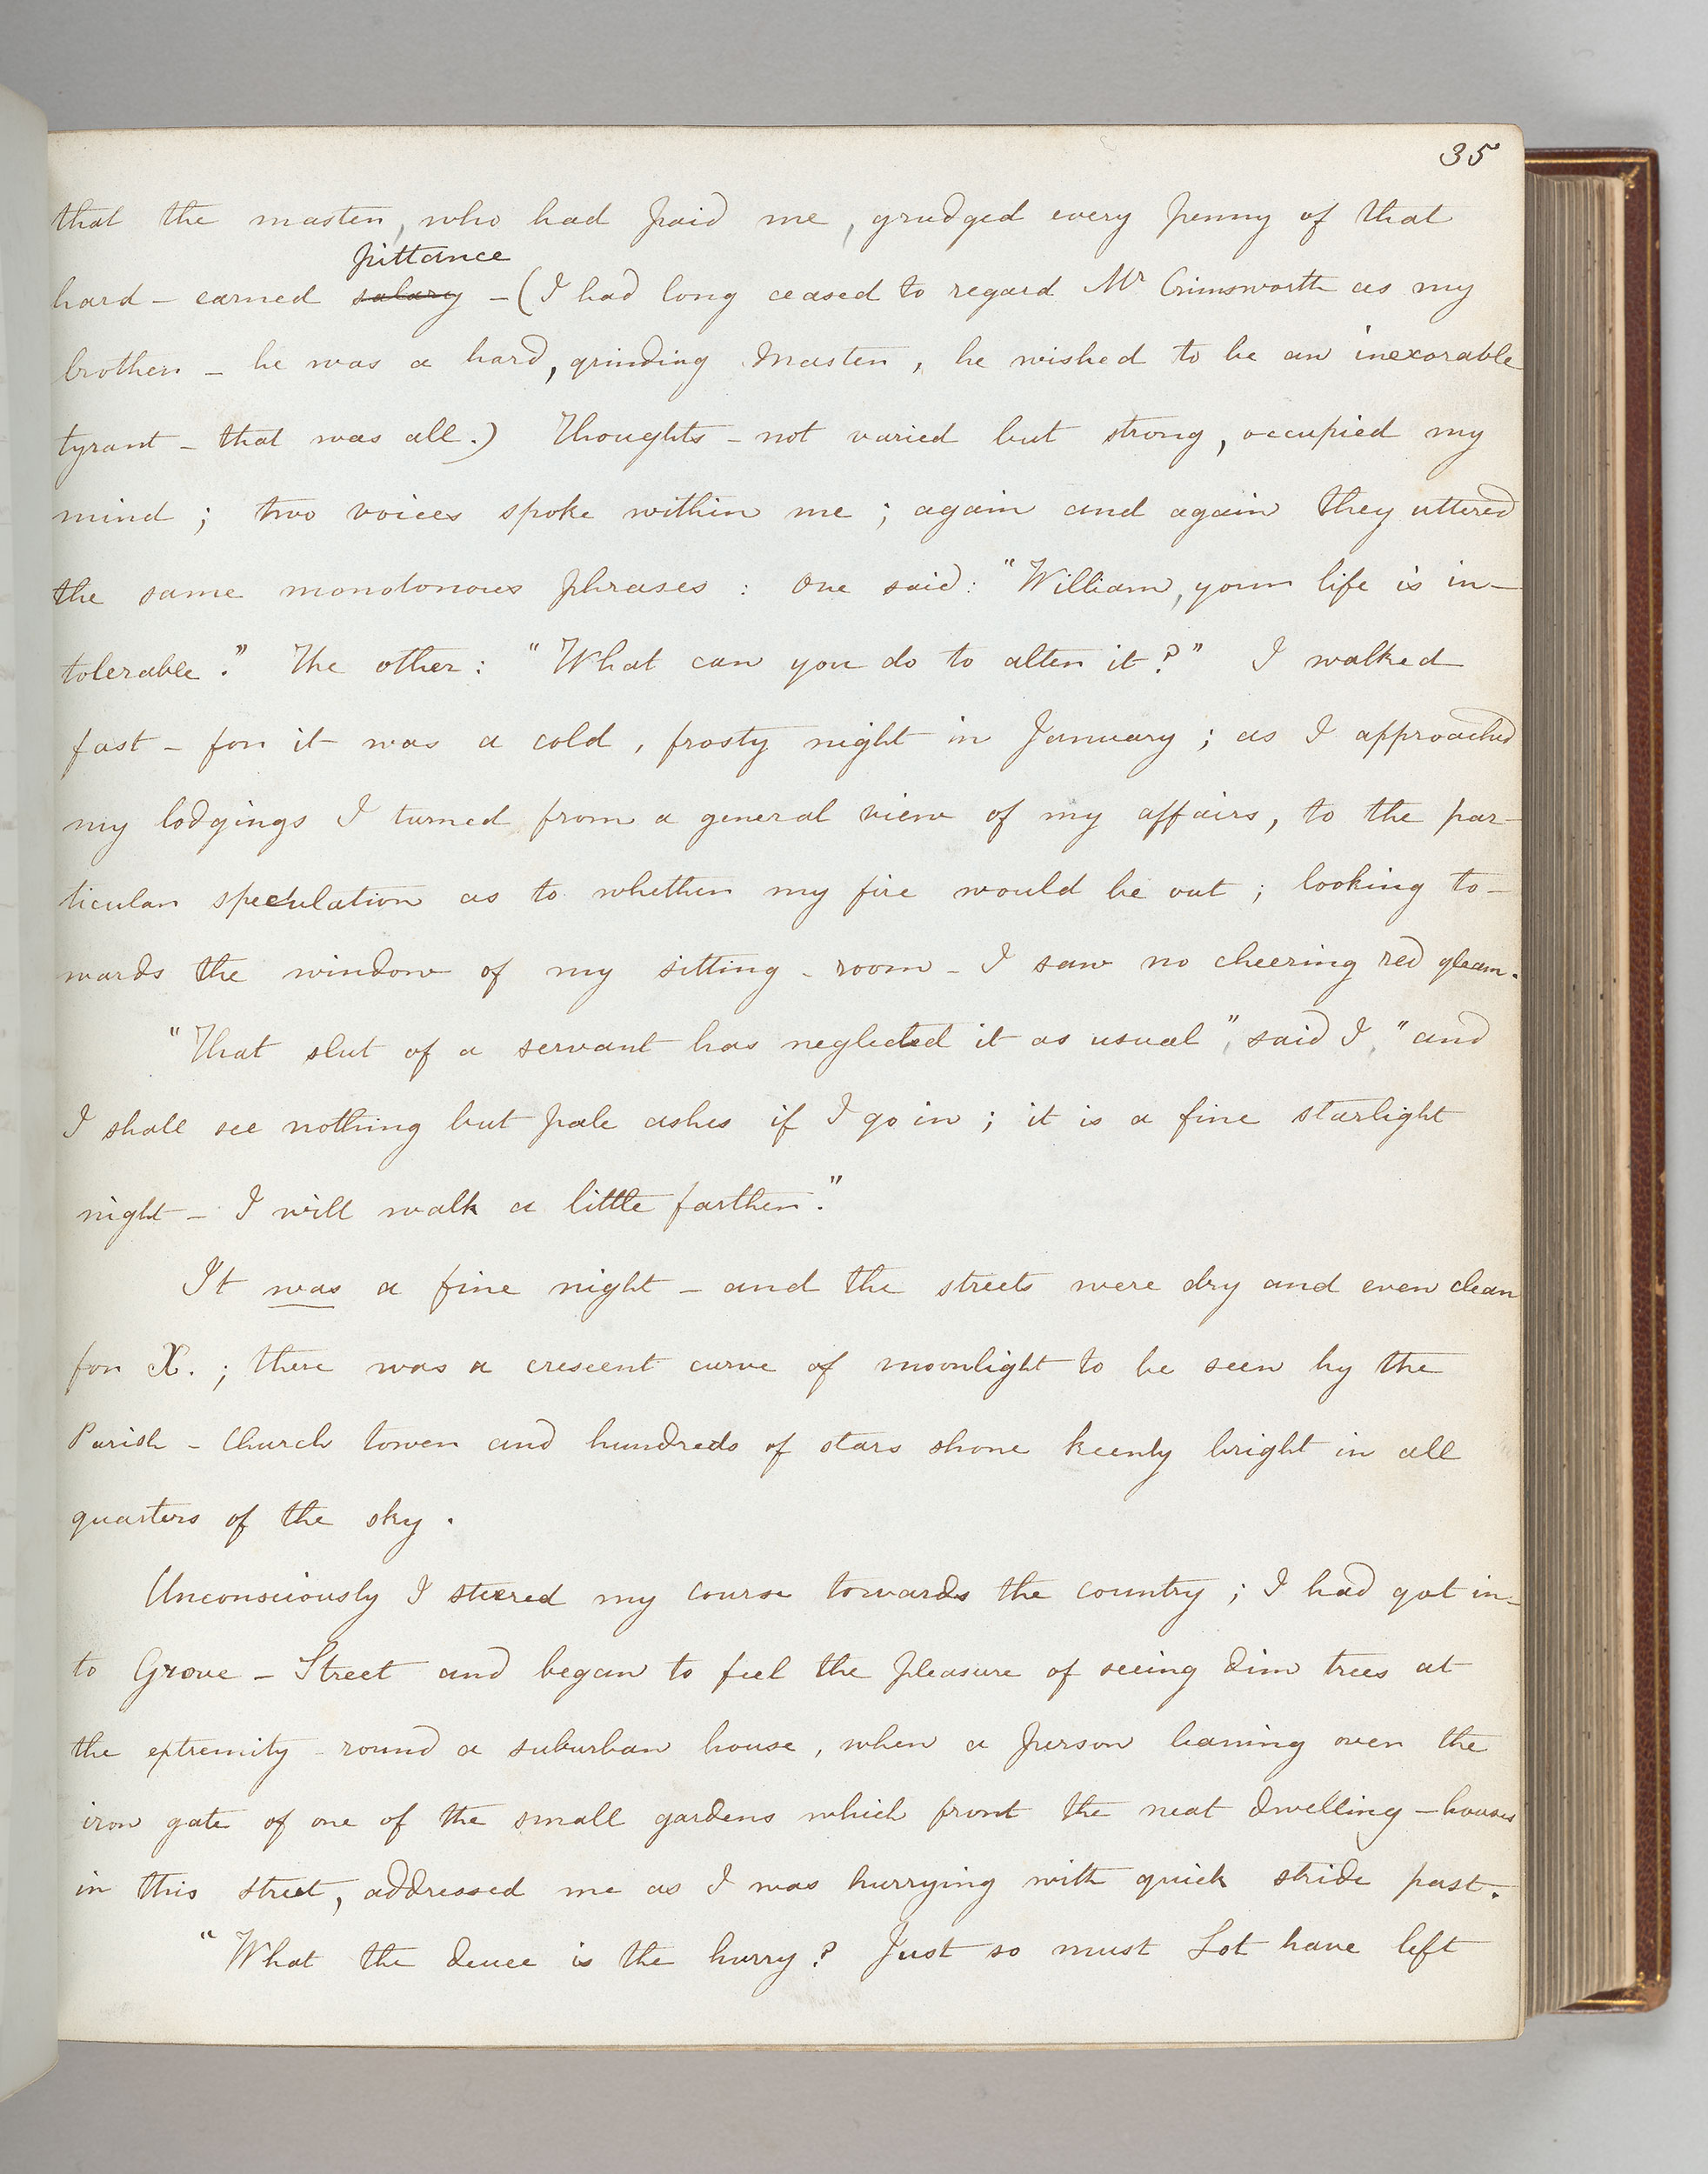 35
that the master, who had paid me, grudged every penny of that
pittance
hard-earned salary - (I had long ceased to regard Mr Crimsworth as my
brother - he was a hard, grinding master, he wished to be an inexorable
tyrant - that was all.) Thoughts - not varied but strong, occupied my
mind; two voices spoke within me; again and again they uttered
the same monotonous phrases: One said: "William, your life is in-
tolerable." The other: "What can you do to alter it?" I walked
fast - for it was a cold, frosty night in January; as I approached
my lodgings I turned from a general view of my affairs, to the par-
ticular speculation as to whether my fire would be out; looking to-
wards the window of my sitting-room - I saw no cheering red gleam.
"That slut of a servant has neglected it as usual", said I, "and
I shall see nothing but pale ashes if I go in; it is a fine starlight
night - I will walk a little farther."
It was a fine night - and the streets were dry and even clean
for X.; there was a crescent curve of moonlight to be seen by the
Parish-Church tower and hundreds of stars shone keenly bright in all
quarters of the sky.
Unconsciously I steered my course towards the country; I had got in-
to Grove-Street and began to feel the pleasure of seeing dim trees at
the extremity round a suburban house, when a person leaning over the
iron gate of one of the small gardens which front the neat dwelling-houses
in this street, addressed me as I was hurrying with quick stride past.
"What the deuce is the hurry? Just so must Lot have left